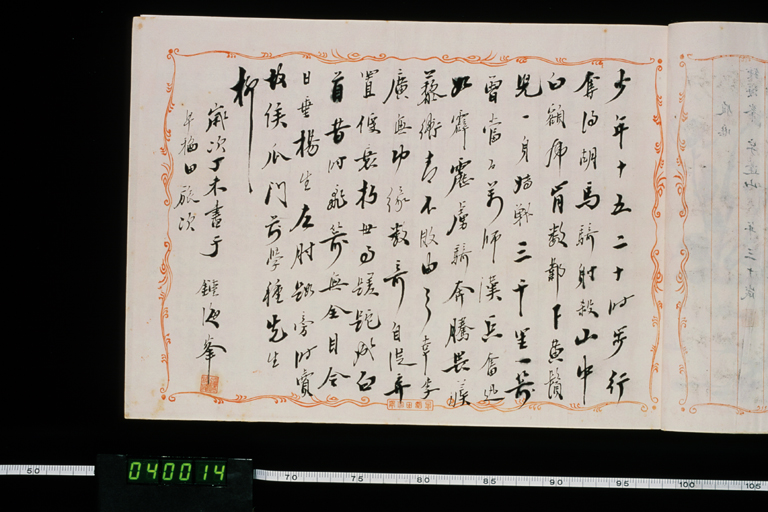 少年十五二十時步行
奪得胡馬騎射殺山中
白額虎肯數鄴下黃鬚
兒一身轉戰三千里一劍
曾當百萬師漢兵奮迅
如霹靂虜騎奔騰畏蒺
藜衛青不敗由天幸李
廣無功緣數奇自從棄
置便衰朽世事蹉跎成白
首昔時飛箭無全目今
日垂楊生左肘路旁時賣
故侯瓜門前學種先生
柳
歲次丁未書于
梅田旅次
海峯
040014
50 70 75 80 85 90 95 100 105